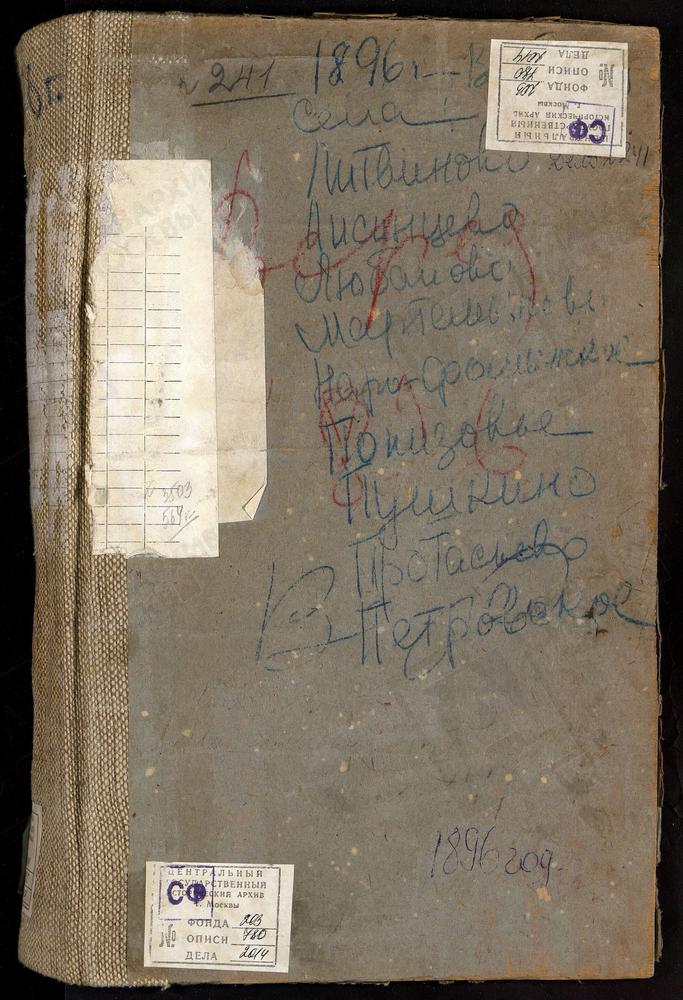 № 241 1896 г.
Села
Литвиново
Лисинцево
Любаново
Мартемьяново
Наро-Фоминское
Понизовье
Пушкино
Протасьево
Петровское
1896 год.
№ ФОНДА 203
ОПИСИ 780
ДЕЛА 2014
ЦЕНТРАЛЬНЫЙ
ГОСУДАРСТВЕННЫЙ
ИСТОРИЧЕСКИЙ АРХИВ
г. Москвы
СФ
6 г.
3503
564
ЦЕНТРАЛЬНЫЙ
ГОСУДАРСТВЕННЫЙ
ИСТОРИЧЕСКИЙ АРХИВ
г. Москвы
СФ
ФОНДА 203
№ ОПИСИ 780
ДЕЛА 2014